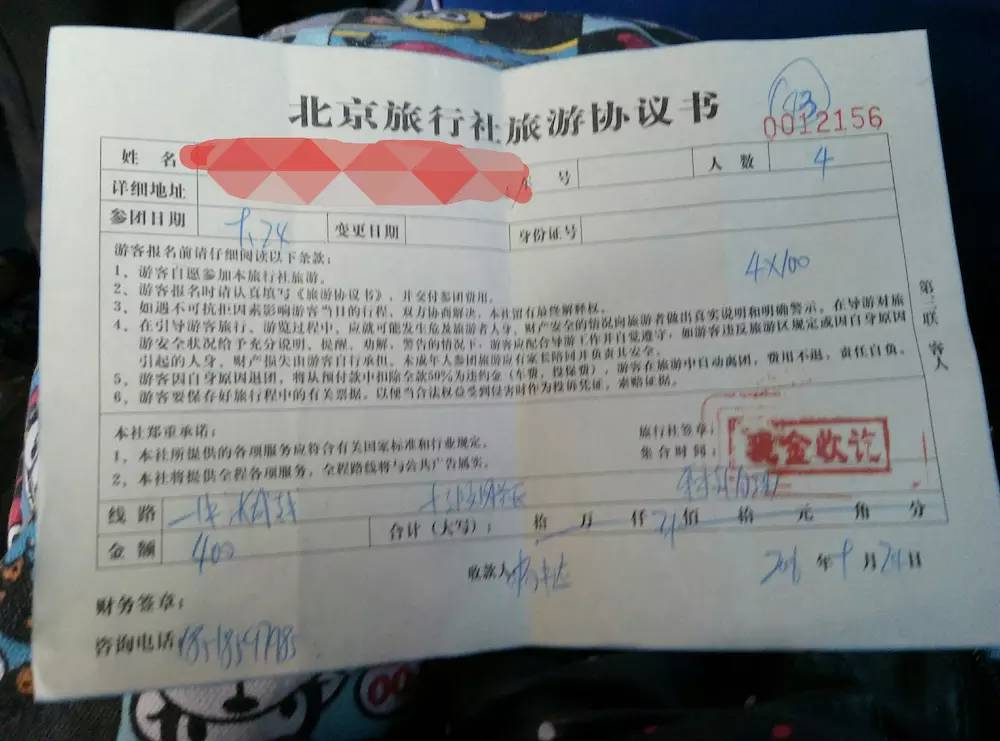 43
北京旅行社旅游协议书
0012156
姓 名 号 人 数 4
详细地址
参团日期 变更日期 身份证号
游客报名前请仔细阅读以下条款：
4×100
1、游客自愿参加本旅行社旅游。
2、游客报名时请认真填写《旅游协议书》，并交付参团费用。
3、如遇不可抗拒因素影响游客当日的行程，双方协商解决，本社留有最终解释权。
4、在引导游客旅行、游览过程中，应就可能发生危及旅游者人身、财产安全的情况向旅游者做出真实说明和明确警示。在导游对旅
游安全状况给予充分说明、提醒，劝解、警告的情况下，游客应配合导游工作并自觉遵守，如游客违反旅游区规定或因自身原因
引起的人身、财产损失由游客自行承担。未成年人参团旅游应有家长陪同并负责其安全。
5、游客因自身原因退团，将从预付款中扣除全款50%为违约金（车费，投保费），游客在旅游中自动离团，费用不退，责任自负。
6、游客要保存好旅行程中的有关票据。以便当合法权益受到侵害时作为投诉凭证，索赔证据。
第三联 客人
本社郑重承诺：
1、本社所提供的各项服务应符合有关国家标准和行业规定。
2、本社将提供全程各项服务，全程路线将与公共广告属实。
旅行社签章：
集合时间：
现金收讫
线 路
金 额 400 合计（大写）： 拾 万 仟 佰 拾 元 角 分
收款人 年 月 日
财务签章：
咨询电话